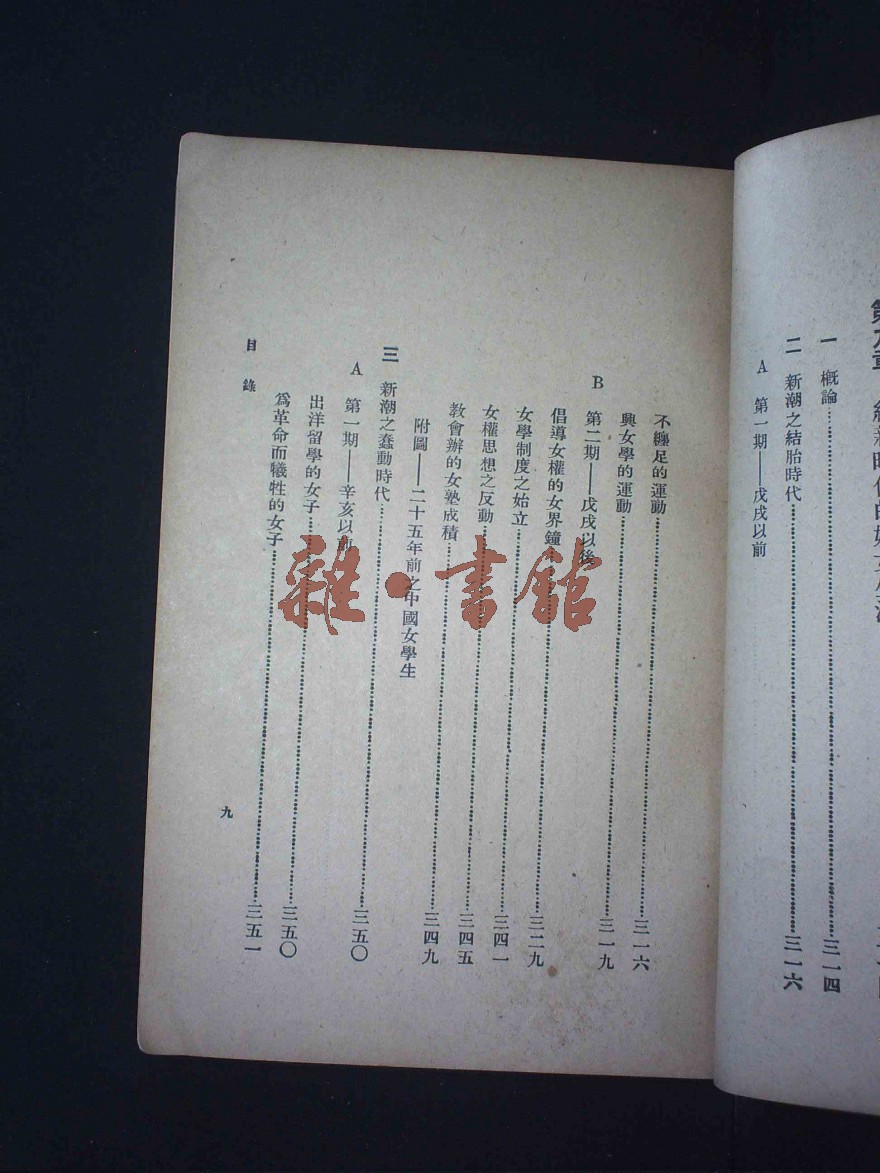 一 概論 三一四
二 新潮之結胎時代 三一六
A 第一期——戊戌以前
不纏足的運動 三一六
興女學的運動 三一九
B 第二期——戊戌以後
倡導女權的女界鐘 三二九
女學制度之始立 三四一
女權思想之反動 三四五
教會辦的女塾成積 三四九
附圖——二十五年前之中國女學生
三 新潮之蠢動時代 三五〇
A 第一期——辛亥以前
出洋留學的女子 三五〇
爲革命而犧牲的女子 三五一
目錄
九
雜·書館